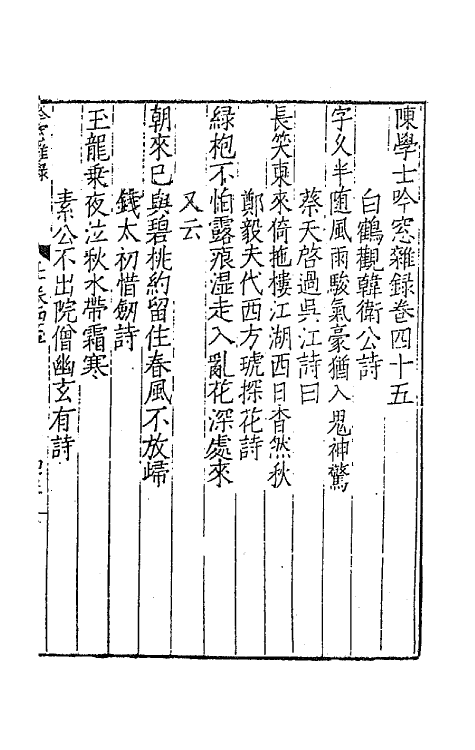 陳學士吟窓雜録卷四十五
白鶴觀韓衛公詩
字久半随風雨駿氣豪猶入鬼神驚
蔡天啓過吳江詩曰
長笑東來倚拖樓江湖西日杳然秋
鄭毅夫代西方琥探花詩
緑袍不怕露痕湿走入亂花深處來
又云
朝來已與碧桃約留住春風不放歸
錢太初惜劒詩
玉龍乗夜泣秋水帶霜寒
素公不出院僧幽玄有詩
吟窓雜録